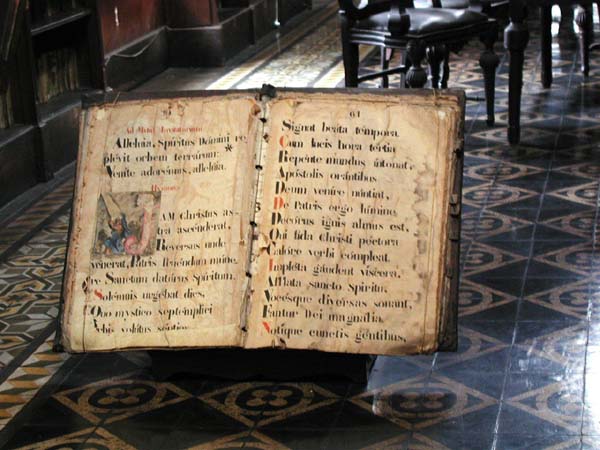 Ad Matut. Invitatorium
Alleluia, Spiritus Domini re
plévit orbem terrárum: *
Veníte adorémus, allelúia.
Hymnus
IAM Christus as
tra ascénderat,
Revérsus unde
vénerat, Patris
re Sanctum datúrus Spíritum.
Solémnis urgébat dies,
Quo mýstico septémplici
Orbis volútus sépties
Signat beáta témpora.
Cum lucis hora tértia
Repénte mundus íntonat,
Apóstolis orántibus
Deum veníre núntiat,
De Patris ergo lúmine
Decórus ignis almus est,
Qui fida Christi péctora
Calóre verbi cómpleat.
Impléta gaudent víscera,
Affláta sancto Spíritu,
Vocésque divérsas sonant,
Fantur Dei magnália,
Notíque cunctis géntibus,